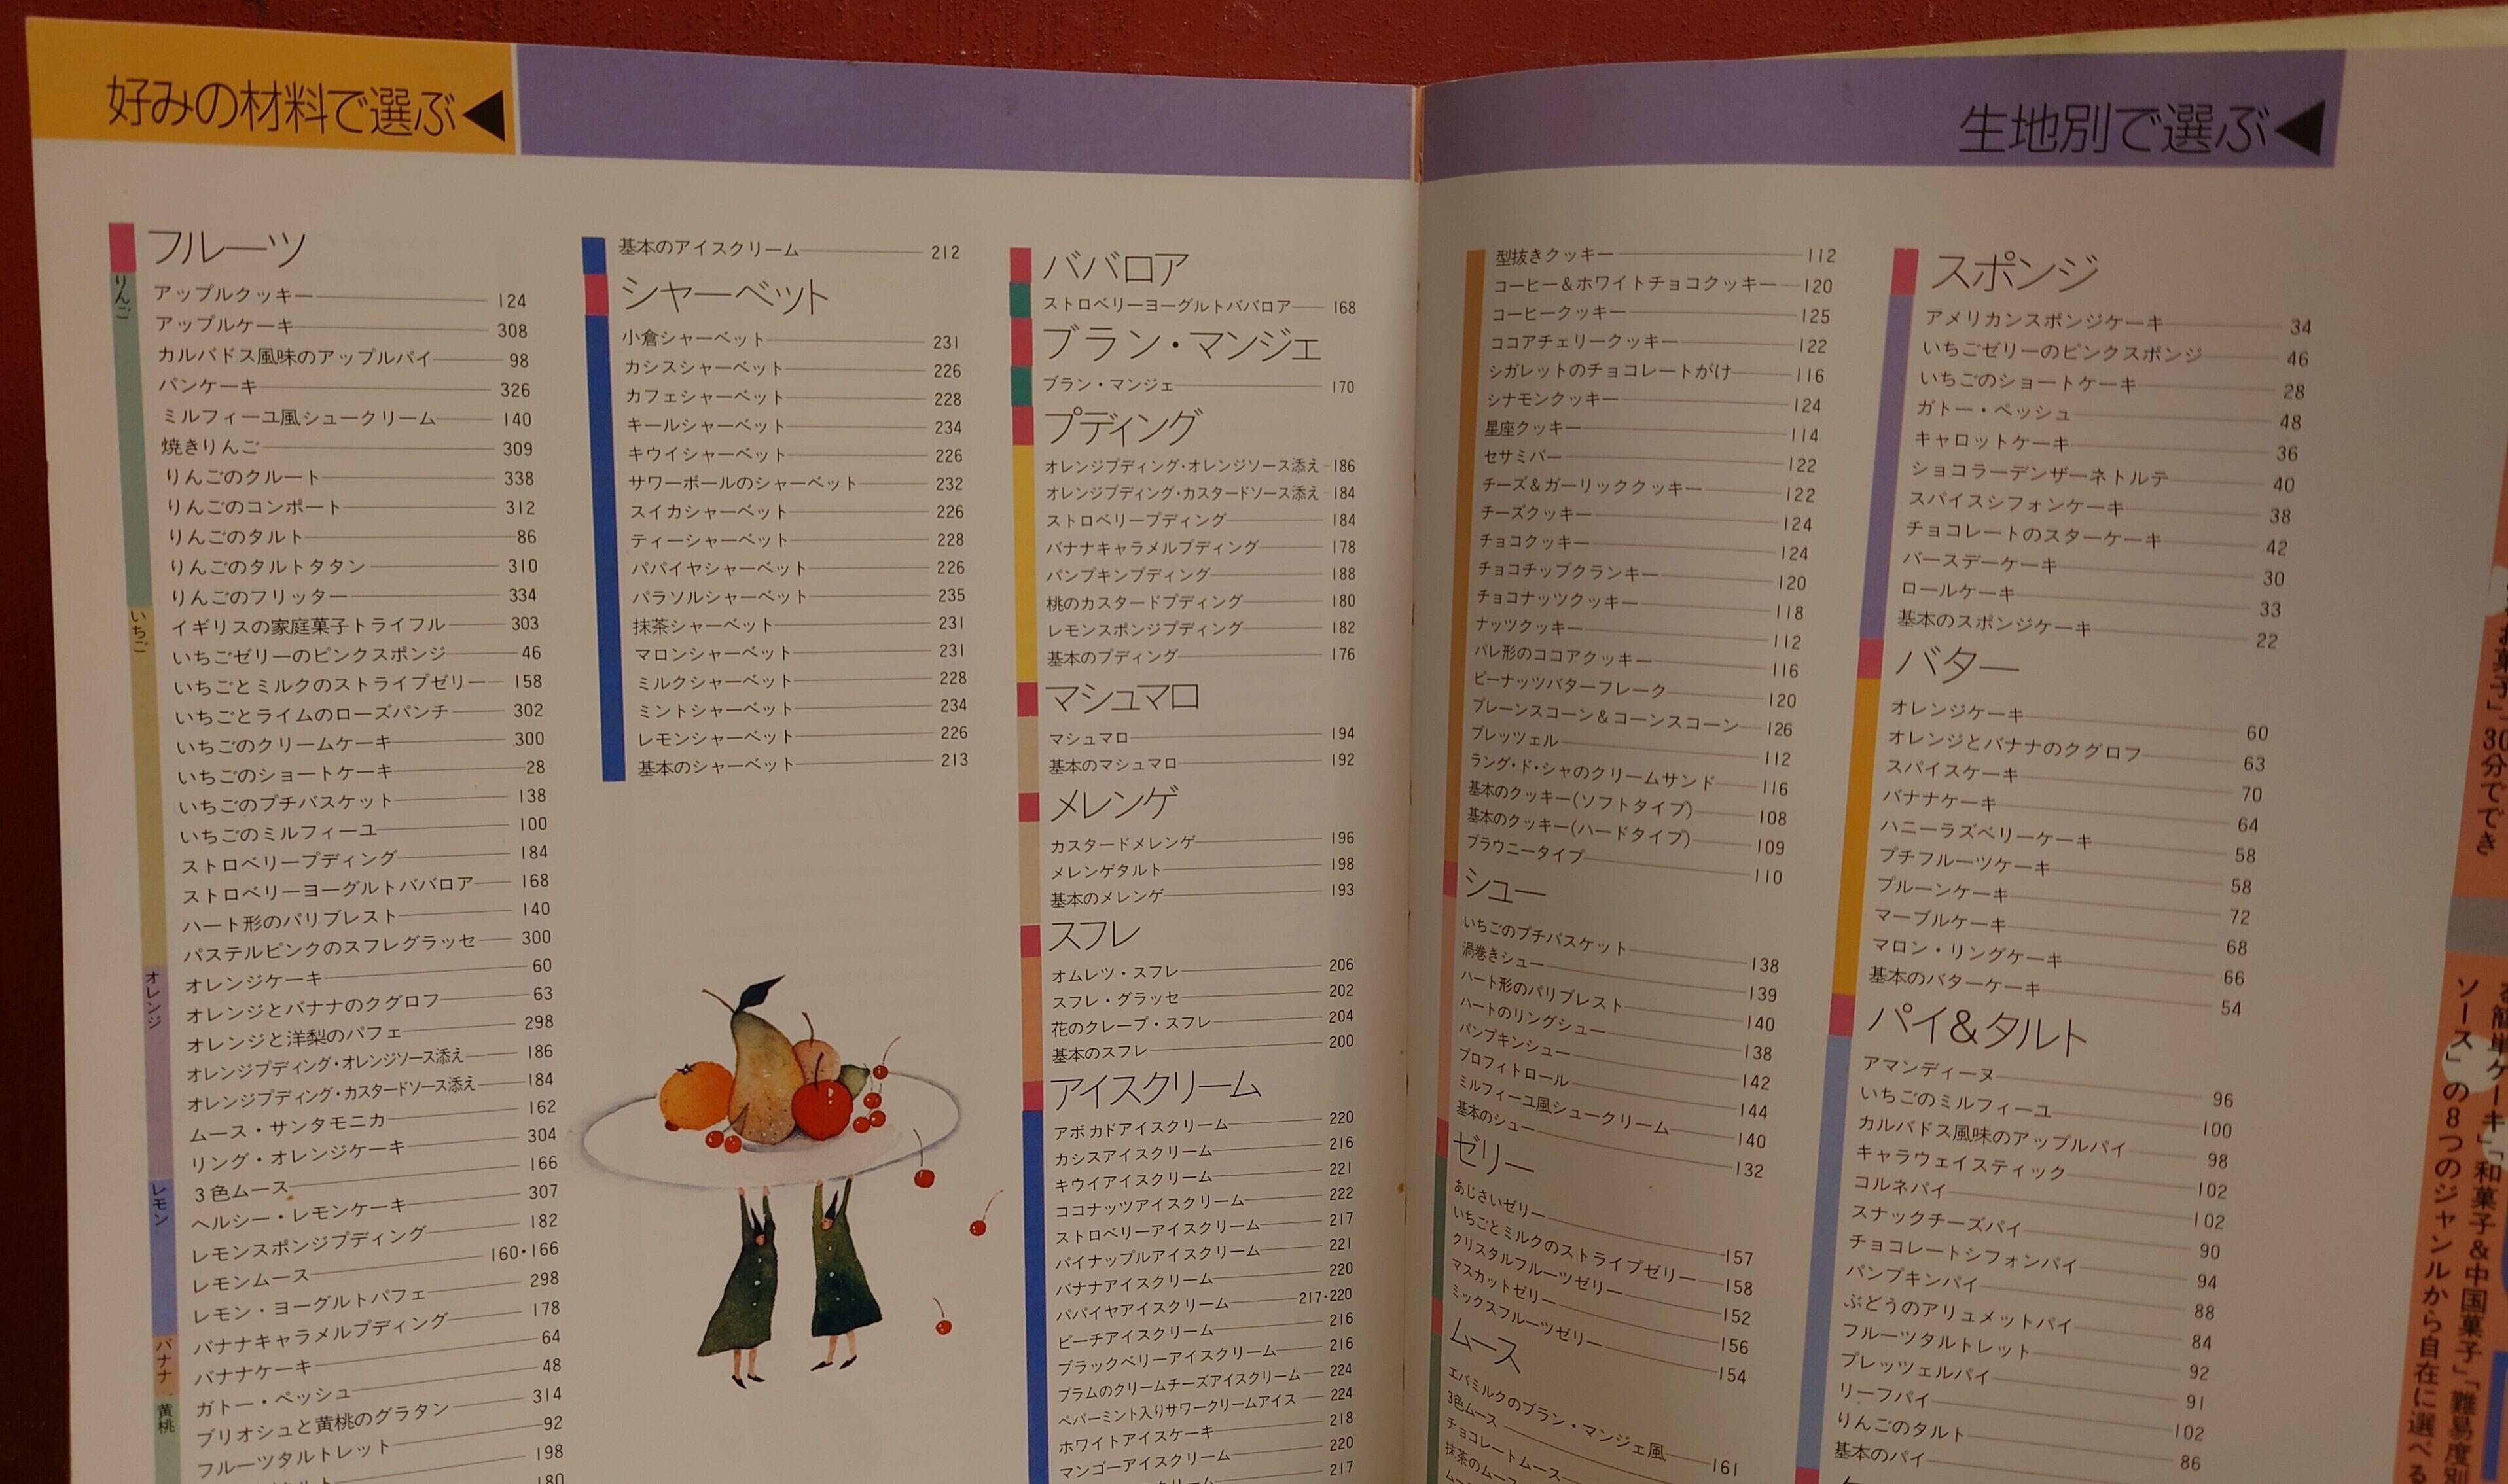 好みの材料で選ぶ◀
フルーツ
りんご
アップルクッキー 124
アップルケーキ 308
カルバドス風味のアップルパイ 98
パンケーキ 326
ミルフィーユ風シュークリーム 140
焼きりんご 309
りんごのクルート 338
りんごのコンポート 312
りんごのタルト 86
りんごのタルトタタン 310
りんごのフリッター 334
いちご
イギリスの家庭菓子トライフル 303
いちごゼリーのピンクスポンジ 46
いちごとミルクのストライプゼリー 158
いちごとライムのローズパンチ 302
いちごのクリームケーキ 300
いちごのショートケーキ 28
いちごのプチバスケット 138
いちごのミルフィーユ 100
ストロベリープディング 184
ストロベリーヨーグルトババロア 168
ハート形のパリブレスト 140
パステルピンクのスフレグラッセ 300
オレンジ
オレンジケーキ 60
オレンジとバナナのクグロフ 63
オレンジと洋梨のパフェ 298
オレンジプディング・オレンジソース添え 186
オレンジプディング・カスタードソース添え 184
ムース・サンタモニカ 162
リング・オレンジケーキ 304
3色ムース 166
レモン
ヘルシー・レモンケーキ 307
レモンスポンジプディング 182
レモンムース 160・166
レモン・ヨーグルトパフェ 298
バナナ
バナナキャラメルプディング 178
バナナケーキ 64
黄桃
ガトー・ペッシュ 48
ブリオシュと黄桃のグラタン 314
フルーツタルトレット 92
198
180
基本のアイスクリーム 212
シャーベット
小倉シャーベット 231
カシスシャーベット 226
カフェシャーベット 228
キールシャーベット 234
キウイシャーベット 226
サワーボールのシャーベット 232
スイカシャーベット 226
ティーシャーベット 228
パパイヤシャーベット 226
パラソルシャーベット 235
抹茶シャーベット 231
マロンシャーベット 231
ミルクシャーベット 228
ミントシャーベット 234
レモンシャーベット 226
基本のシャーベット 213
ババロア
ストロベリーヨーグルトババロア 168
ブラン・マンジェ
ブラン・マンジェ 170
プディング
オレンジプディング・オレンジソース添え 186
オレンジプディング・カスタードソース添え 184
ストロベリープディング 184
バナナキャラメルプディング 178
パンプキンプディング 188
桃のカスタードプディング 180
レモンスポンジプディング 182
基本のプディング 176
マシュマロ
マシュマロ 194
基本のマシュマロ 192
メレンゲ
カスタードメレンゲ 196
メレンゲタルト 198
基本のメレンゲ 193
スフレ
オムレツ・スフレ 206
スフレ・グラッセ 202
花のクレープ・スフレ 204
基本のスフレ 200
アイスクリーム
アボカドアイスクリーム 220
カシスアイスクリーム 216
キウイアイスクリーム 221
ココナッツアイスクリーム 222
ストロベリーアイスクリーム 217
パイナップルアイスクリーム 221
バナナアイスクリーム 220
パパイヤアイスクリーム 217・220
ピーチアイスクリーム 216
ブラックベリーアイスクリーム 216
プラムのクリームチーズアイスクリーム 224
ペパーミント入りサワークリームアイス 224
ホワイトアイスケーキ 218
マンゴーアイスクリーム 220
217
生地別で選ぶ◀
型抜きクッキー 112
コーヒー&ホワイトチョコクッキー 120
コーヒークッキー 125
ココアチェリークッキー 122
シガレットのチョコレートがけ 116
シナモンクッキー 124
星座クッキー 114
セサミバー 122
チーズ&ガーリッククッキー 122
チーズクッキー 124
チョコクッキー 124
チョコチップクランキー 120
チョコナッツクッキー 118
ナッツクッキー 112
パレ形のココアクッキー 116
ピーナッツバターフレーク 120
プレーンスコーン&コーンスコーン 126
プレッツェル 112
ラング・ド・シャのクリームサンド 116
基本のクッキー(ソフトタイプ) 108
基本のクッキー(ハードタイプ) 109
ブラウニータイプ 110
シュー
いちごのプチバスケット 138
渦巻きシュー 139
ハート形のパリブレスト 140
ハートのリングシュー 138
パンプキンシュー 142
プロフィトロール 144
ミルフィーユ風シュークリーム 140
基本のシュー 132
ゼリー
あじさいゼリー 157
いちごとミルクのストライプゼリー 158
クリスタルフルーツゼリー 152
マスカットゼリー 156
ミックスフルーツゼリー 154
ムース
エバミルクのブラン・マンジェ風 161
3色ムース
チョコレートムース
抹茶のムース
スポンジ
アメリカンスポンジケーキ 34
いちごゼリーのピンクスポンジ 46
いちごのショートケーキ 28
ガトー・ペッシュ 48
キャロットケーキ 36
ショコラーデンザーネトルテ 40
スパイスシフォンケーキ 38
チョコレートのスターケーキ 42
バースデーケーキ 30
ロールケーキ 33
基本のスポンジケーキ 22
バター
オレンジケーキ 60
オレンジとバナナのクグロフ 63
スパイスケーキ 70
バナナケーキ 64
ハニーラズベリーケーキ 58
プチフルーツケーキ 58
プルーンケーキ 72
マーブルケーキ 68
マロン・リングケーキ 66
基本のバターケーキ 54
パイ&タルト
アマンディーヌ 96
いちごのミルフィーユ 100
カルバドス風味のアップルパイ 98
キャラウェイスティック 102
コルネパイ 102
スナックチーズパイ 90
チョコレートシフォンパイ 94
パンプキンパイ 88
ぶどうのアリュメットパイ 84
フルーツタルトレット 92
プレッツェルパイ 91
リーフパイ 102
りんごのタルト 86
基本のパイ
お菓子」「30分ででき
る簡単ケーキ」「和菓子&中国菓子」「難易度別
ソース」の8つのジャンルから自在に選べる